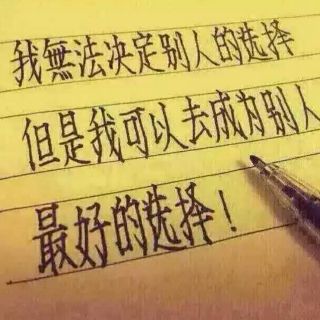 我無法决定别人的选择
但是我可以去成为别人
最好的选择！